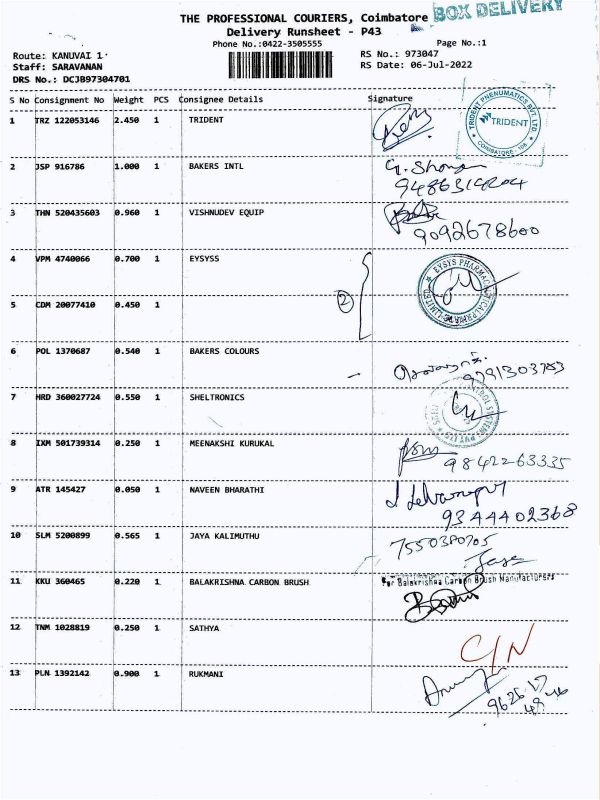 BOX DELIVERY
THE PROFESSIONAL COURIERS, Coimbatore
Delivery Runsheet - P43
Phone No.:0422-3505555
Page No.:1
Route: KANUVAI 1
Staff: SARAVANAN
DRS No.: DCJB97304701
RS No.: 973047
RS Date: 06-Jul-2022
S No Consignment No Weight PCS Consignee Details Signature
1 TRZ 122053146 2.450 1 TRIDENT
TRIDENT PNEUMATICS PVT. LTD.
TRIDENT
COIMBATORE
2 JSP 916786 1.000 1 BAKERS INTL
3 THN 520435603 0.960 1 VISHNUDEV EQUIP
9092678600
4 VPM 4740066 0.700 1 EYSYSS
EYSYS PHARMACEUTICAL PRIVATE LIMITED
2
5 CDM 20077410 0.450 1
6 POL 1370687 0.540 1 BAKERS COLOURS
7 HRD 360027724 0.550 1 SHELTRONICS
8 IXM 501739314 0.250 1 MEENAKSHI KURUKAL
9842263335
9 ATR 145427 0.050 1 NAVEEN BHARATHI
9344402368
10 SLM 5200899 0.565 1 JAYA KALIMUTHU
7550380705
Jaya
11 KKU 360465 0.220 1 BALAKRISHNA CARBON BRUSH
For Balakrishna Carbon Brush Manufacturers
12 TNM 1028819 0.250 1 SATHYA
C/N
13 PLN 1392142 0.900 1 RUKMANI